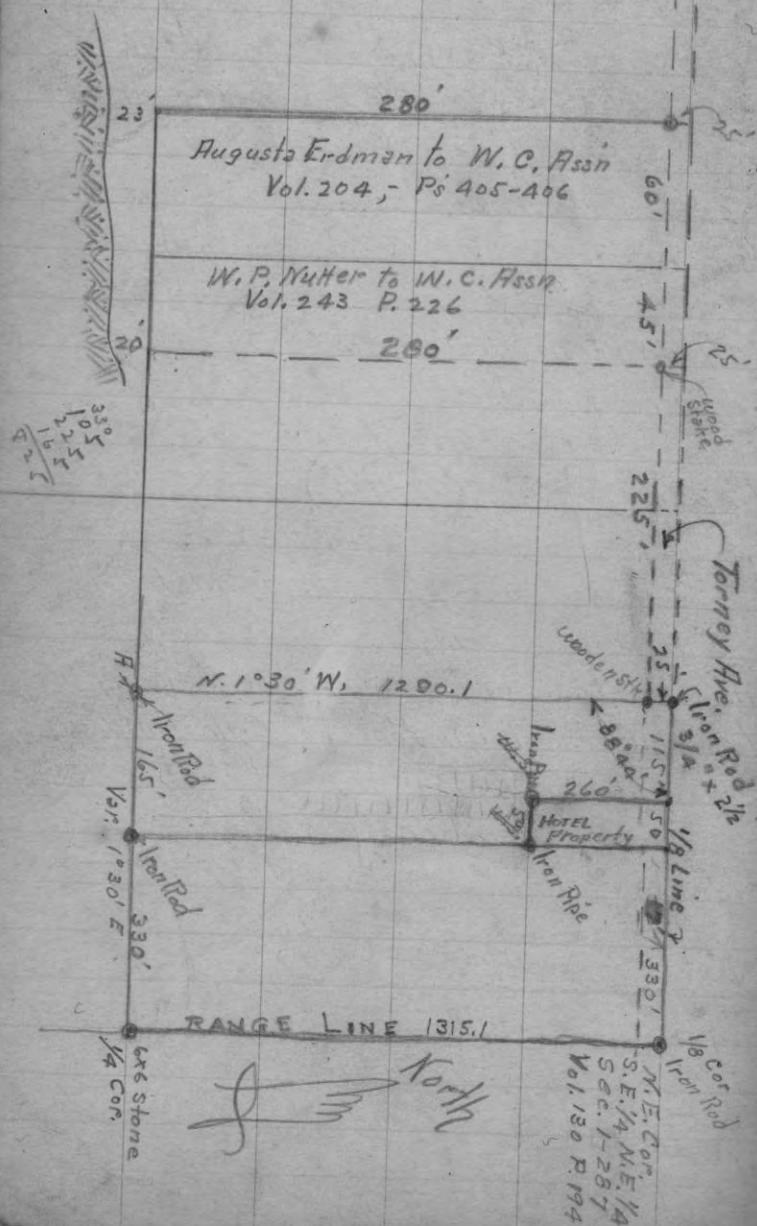 280'
23'
25'
Augusta Erdman to W. C. Assn
Vol. 204, - Ps 405-406
60'
W. P. Nutter to W. C. Assn
Vol. 243 P. 226
45'
20'
280'
25'
Wood
Stake
330
105
225
165
825
225'
Torney Ave.
Wooden Stk
25'
A
N. 1°30' W, 1290.1
Iron Rod
3/4" x 2 1/2
Iron Rod
165'
88°44'
115'
Iron Pipe
260'
50'
50
HOTEL
Property
Iron Rod
Iron Pipe
1/8 Line
Var. 1°30' E
330'
330'
RANGE LINE 1315.1
1/8 Cor
Iron Rod
6x6 Stone
1/4 Cor.
North
N.E. Cor.
S.E. 1/4 N.E. 1/4
Sec. 1-28-7
Vol. 130 P. 194